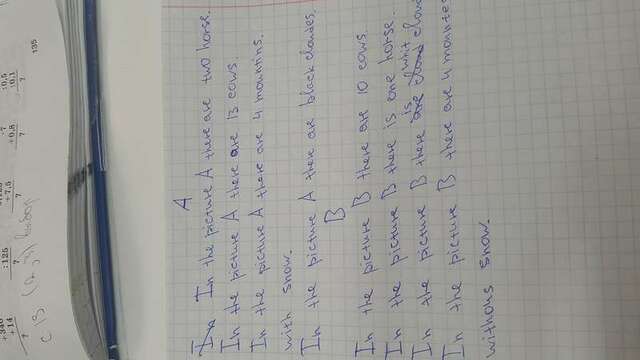 +340 :125 +7,5 ·7 :0,5
+14 ? ? +0,8 :0,1
? ? ?
135
A
In In the picture A there are two horse.
In the picture A there are 13 cows.
In the picture A there are 4 mountins.
with snow.
In the picture A there are black cloudes.
B
In the picture B there are 10 cows.
In the picture B there is one horse.
In the picture B there are is cloud whit cloud
In the picture B there are 4 mountes
withous snow.